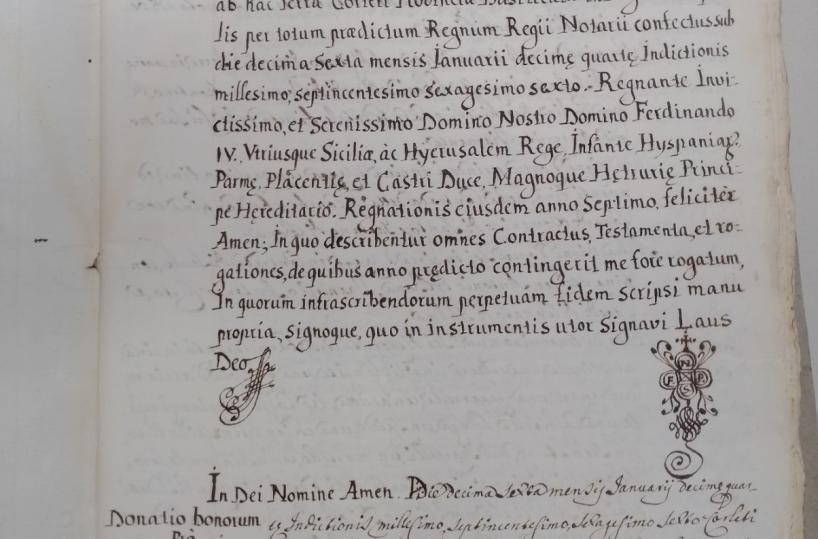 ab hac Terra Corleti Provincia
lis per totum prædictum Regnum Regii Notarii confectus sub
die decima sexta mensis Januarii decimę quartę Indictionis
millesimo, septincentesimo sexagesimo sexto. Regnante Invi-
ctissimo, et Serenissimo Domino Nostro Domino Ferdinando
IV. Utriusque Siciliæ, àc Hyerusalem Rege, Infante Hyspaniar?
Parmę, Placentię, et Castri Duce, Magnoque Hetrurię Princi-
pe Hereditario. Regnationis eiusdem anno septimo, felicitèr
Amen; In quo describentur omnes Contractus, Testamenta, et ro-
gationes, de quibus anno pędicto contingerit me fore rogatum,
In quorum infrascribendorum perpetuam fidem scripsi manu
propria, signoque, quo in instrumentis utor signavi Laus
Deo
N
F P
S
In Dei Nomine Amen. Die decima sexta mensis Januarij decimę quar-
Donatio bonorum tę Indictionis millesimo, septincentesimo, sexagesimo sexto Corleti
Pro